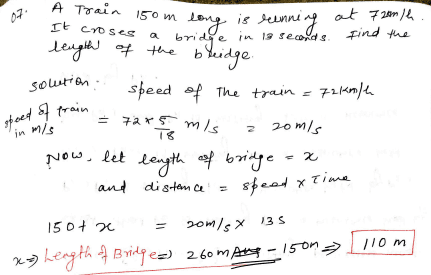 07. A Train 150 m long is running at 72 km/h.
It croses a bridge in 13 seconds. Find the
length of the bridge.
Solution: speed of The train = 72 km/h
speed of train in m/s = 72 x 5/18 m/s = 20 m/s
Now, let length of bridge = x
and distance = speed x Time
150 + x = 20m/s x 13 s
x => Length of Bridge => 260 m - 150m => 110 m